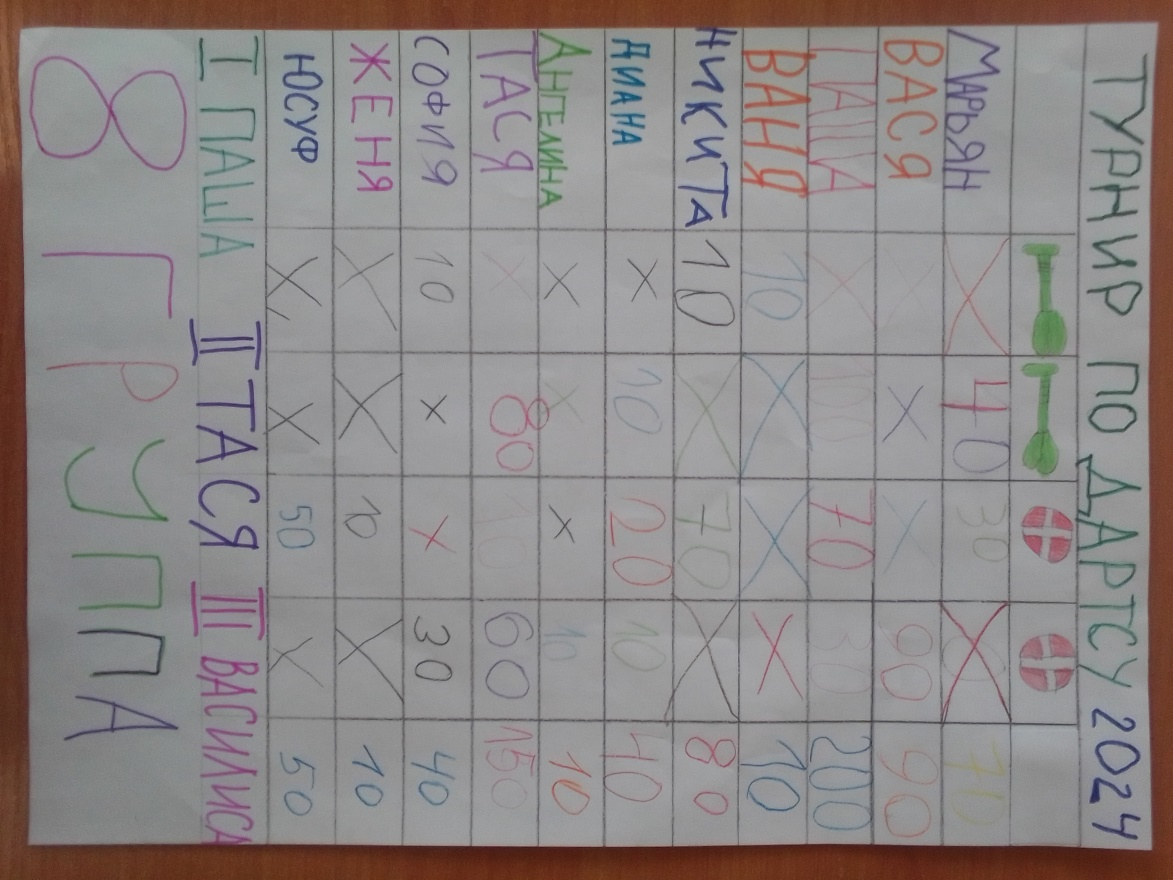 ТУРНИР ПО ДАРТСУ 2024
МАРЬЯН X 40 30 X 70
ВАСЯ X X X 90 90
ПАША X 100 70 30 200
ВАНЯ 10 X X X 10
НИКИТА 10 X 70 X 80
ДИАНА X 10 20 10 40
АНГЕЛИНА X X X 10 10
ТАСЯ X 80 10 60 150
СОФИЯ 10 X X 30 40
ЖЕНЯ X X 10 X 10
ЮСУФ X X 50 X 50
I ПАША II ТАСЯ III ВАСИЛИСА
8 ГРУППА